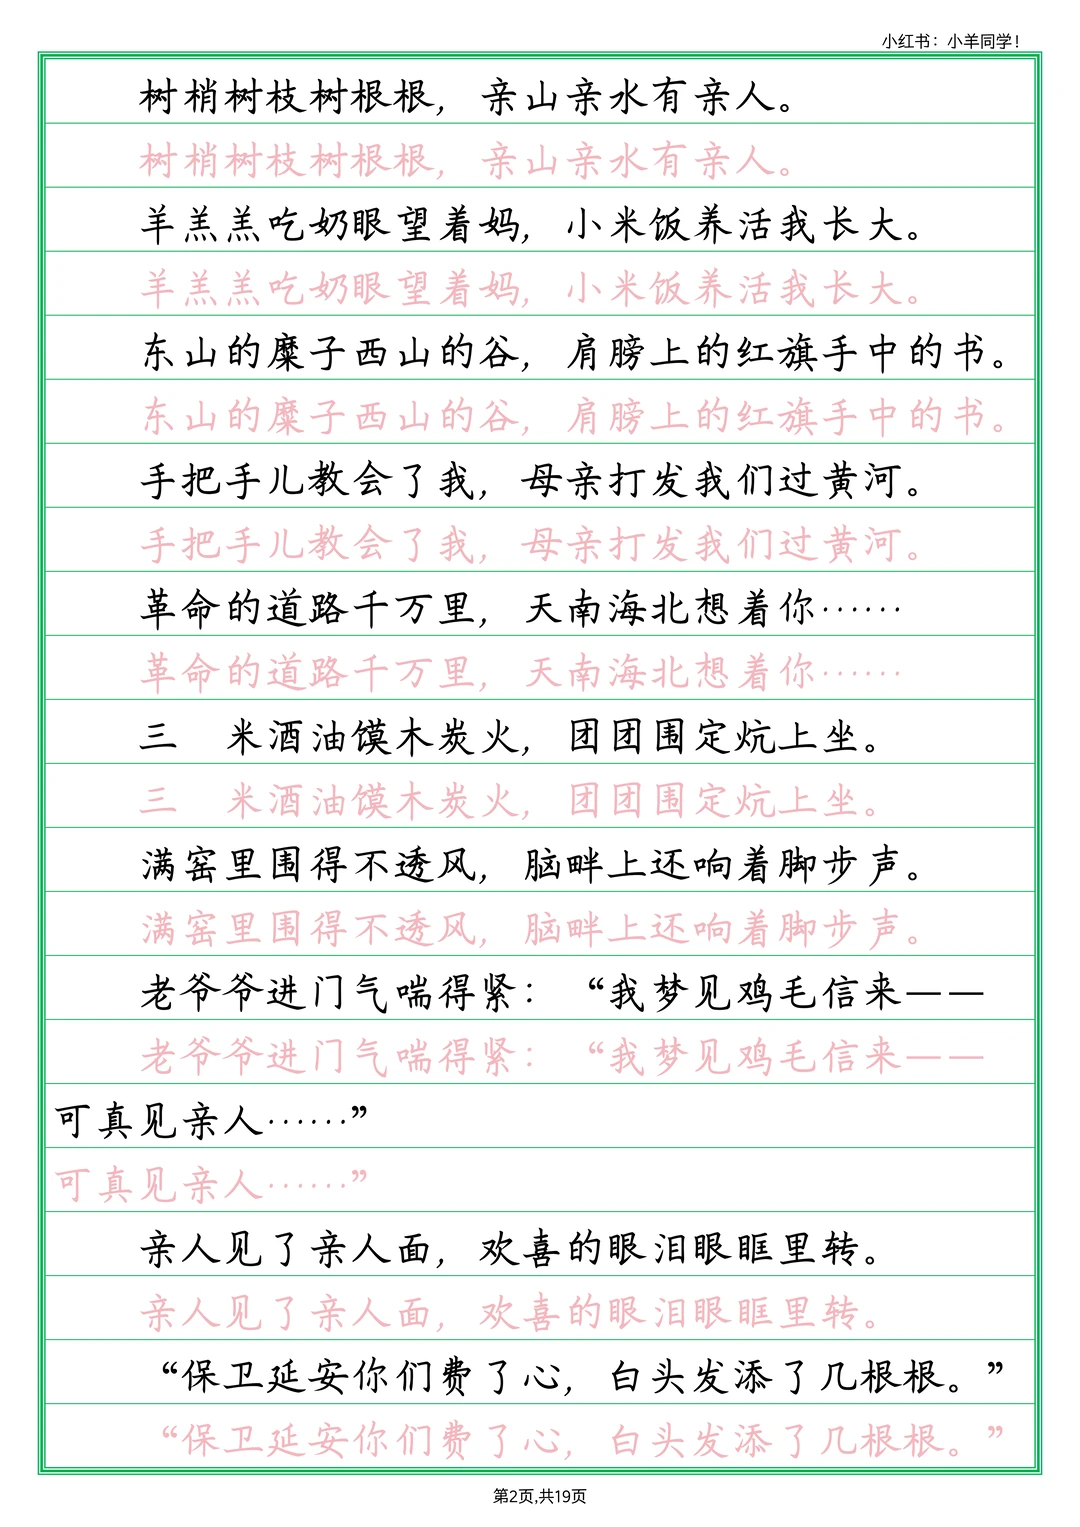 小红书：小羊同学！
树梢树枝树根根，亲山亲水有亲人。
树梢树枝树根根，亲山亲水有亲人。
羊羔羔吃奶眼望着妈，小米饭养活我长大。
羊羔羔吃奶眼望着妈，小米饭养活我长大。
东山的糜子西山的谷，肩膀上的红旗手中的书。
东山的糜子西山的谷，肩膀上的红旗手中的书。
手把手儿教会了我，母亲打发我们过黄河。
手把手儿教会了我，母亲打发我们过黄河。
革命的道路千万里，天南海北想着你……
革命的道路千万里，天南海北想着你……
三　米酒油馍木炭火，团团围定炕上坐。
三　米酒油馍木炭火，团团围定炕上坐。
满窑里围得不透风，脑畔上还响着脚步声。
满窑里围得不透风，脑畔上还响着脚步声。
老爷爷进门气喘得紧：“我梦见鸡毛信来——
老爷爷进门气喘得紧：“我梦见鸡毛信来——
可真见亲人……”
可真见亲人……”
亲人见了亲人面，欢喜的眼泪眼眶里转。
亲人见了亲人面，欢喜的眼泪眼眶里转。
“保卫延安你们费了心，白头发添了几根根。”
“保卫延安你们费了心，白头发添了几根根。”
第2页,共19页